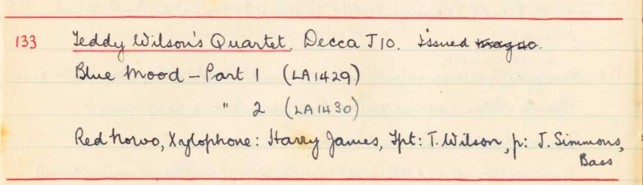 133 Teddy Wilson's Quartet, Decca J10. Issued
Blue Mood – Part 1 (LA1429)
" 2 (LA1430)
Red Norvo, Xylophone: Harry James, Tpt: T. Wilson, p: J. Simmons,
Bass